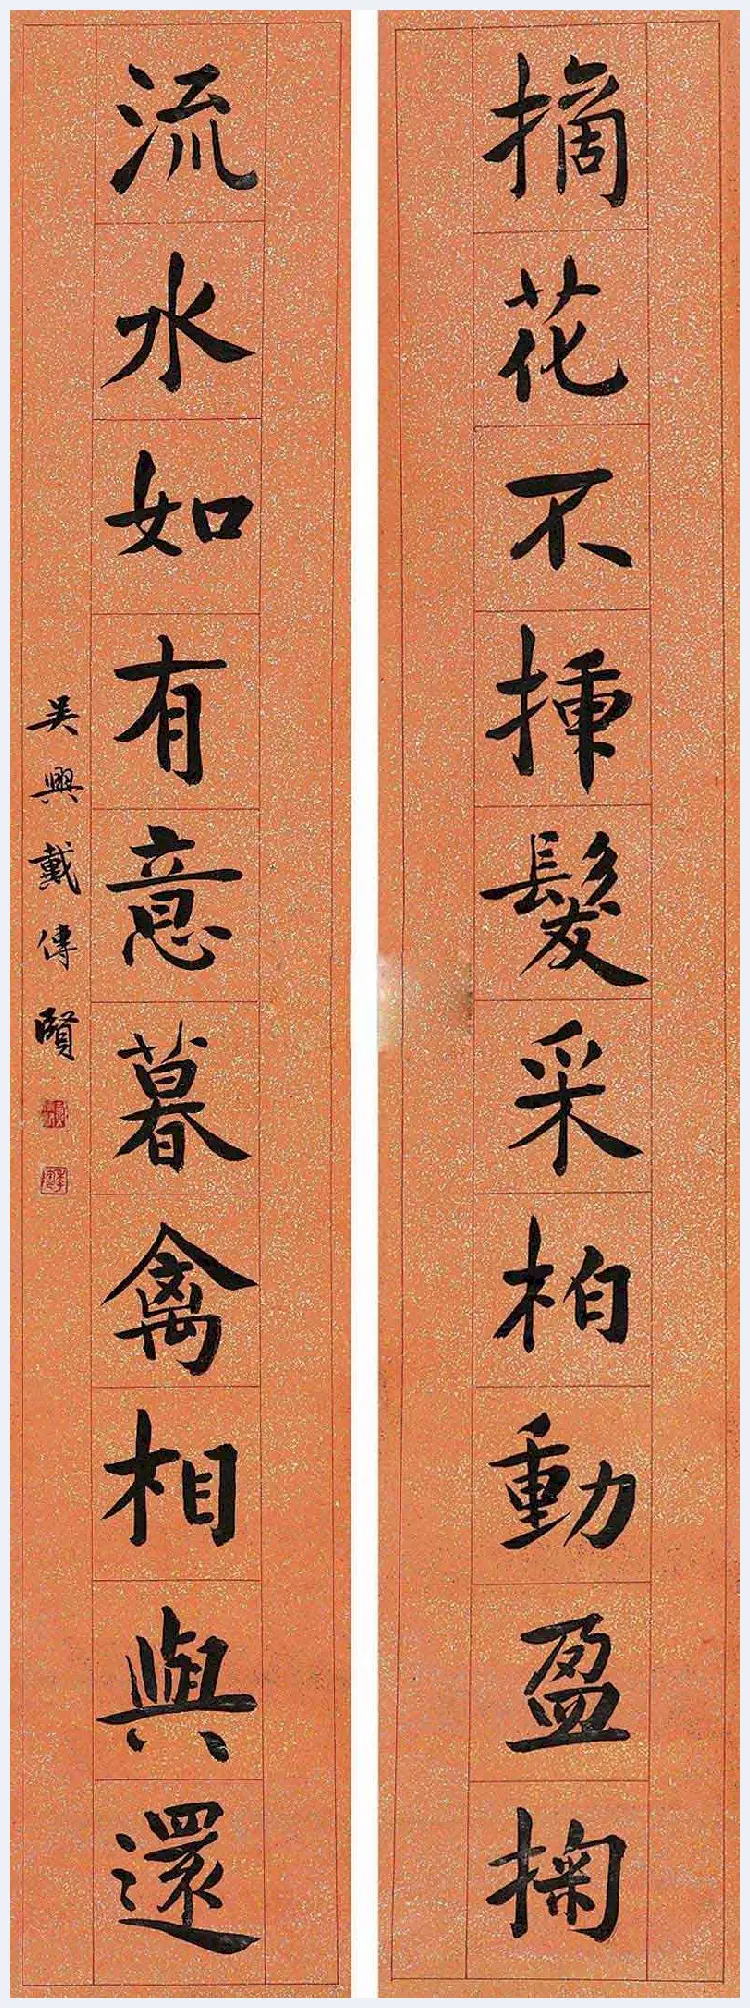 摘花不揷髮采柏動盈掬
流水如有意暮禽相與還
吳興戴傳賢